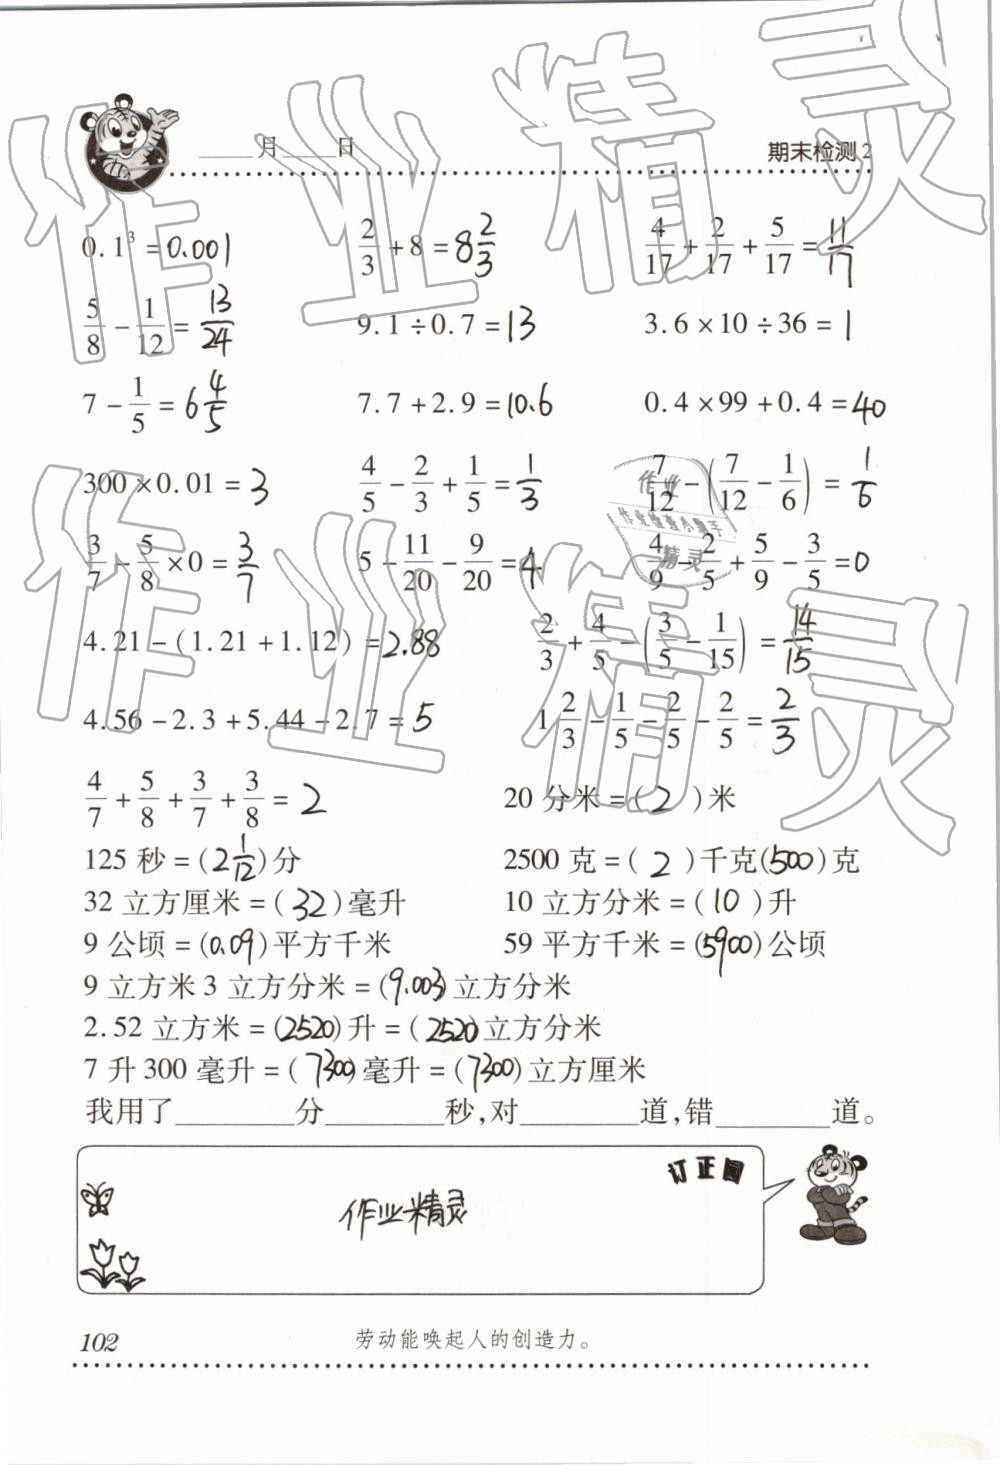 ____月____日 期末检测 2
0.1³ = 0.001 2/3 + 8 = 8 2/3 4/17 + 2/17 + 5/17 = 11/17
5/8 - 1/12 = 13/24 9.1 ÷ 0.7 = 13 3.6 × 10 ÷ 36 = 1
7 - 1/5 = 6 4/5 7.7 + 2.9 = 10.6 0.4 × 99 + 0.4 = 40
300 × 0.01 = 3 4/5 - 2/3 + 1/5 = 1/3 7/12 - (7/12 - 1/6) = 1/6
3/7 - 5/8 × 0 = 3/7 5 - 11/20 - 9/20 = 4 4/9 - 2/5 + 5/9 - 3/5 = 0
4.21 - (1.21 + 1.12) = 2.88 2/3 + 4/5 - (3/5 - 1/15) = 14/15
4.56 - 2.3 + 5.44 - 2.7 = 5 1 2/3 - 1/5 - 2/5 - 2/5 = 2/3
4/7 + 5/8 + 3/7 + 3/8 = 2 20 分米 = ( 2 )米
125 秒 = (2 1/12)分 2500 克 = ( 2 )千克(500)克
32 立方厘米 = ( 32 )毫升 10 立方分米 = ( 10 )升
9 公顷 = (0.09)平方千米 59 平方千米 = (5900)公顷
9 立方米 3 立方分米 = (9.003)立方分米
2.52 立方米 = (2520)升 = ( 2520)立方分米
7 升 300 毫升 = ( 7300)毫升 = (7300)立方厘米
我用了________分________秒,对________道,错________道。
订正园
作业精灵
102 劳动能唤起人的创造力。
作业精灵
作业精灵
作业
作业检查小帮手
精灵